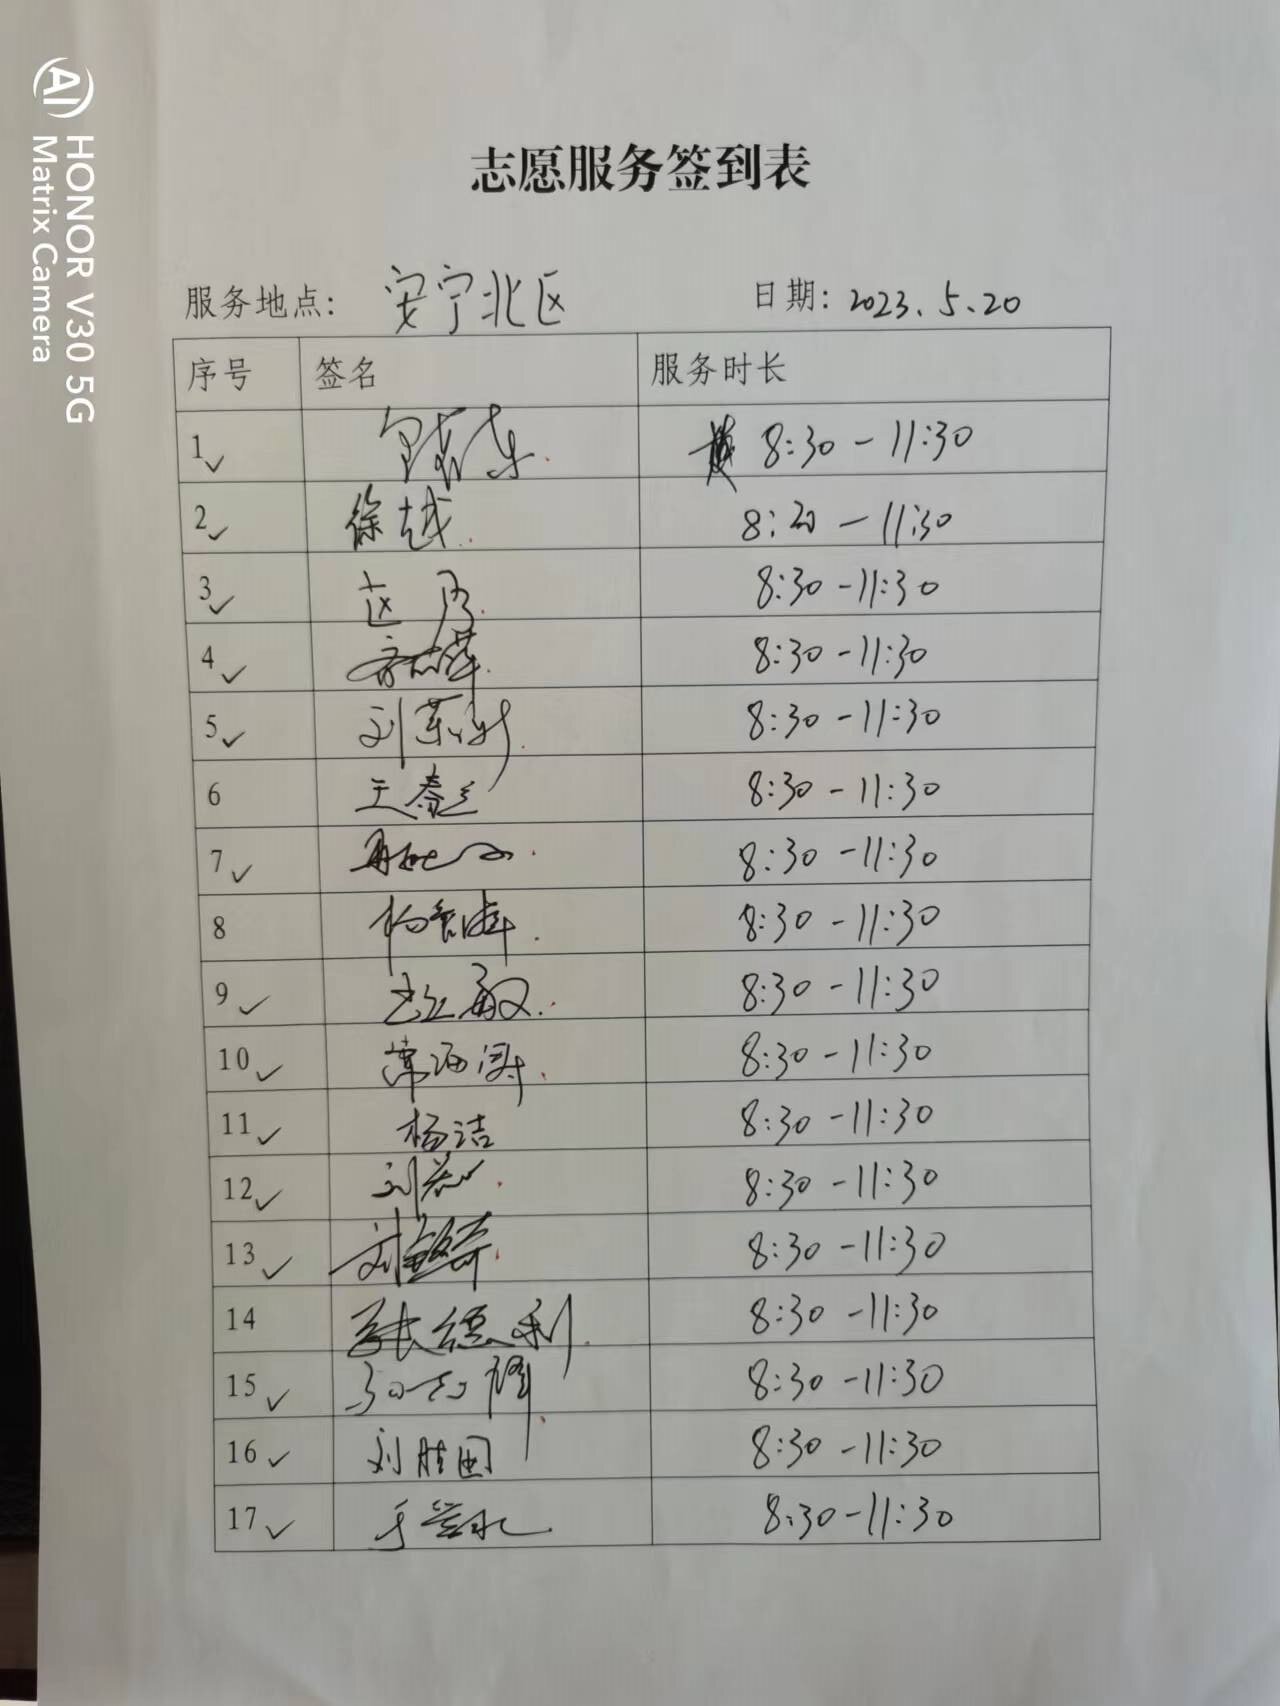 AI HONOR V30 5G
Matrix Camera
志愿服务签到表
服务地点: 安宁北区 日期: 2023.5.20
序号 签名 服务时长
1 8:30-11:30
2 徐越 8:30-11:30
3 8:30-11:30
4 8:30-11:30
5 刘 8:30-11:30
6 王 8:30-11:30
7 8:30-11:30
8 杨 8:30-11:30
9 敏 8:30-11:30
10 8:30-11:30
11 杨洁 8:30-11:30
12 刘 8:30-11:30
13 刘 8:30-11:30
14 张德利 8:30-11:30
15 8:30-11:30
16 刘胜国 8:30-11:30
17 8:30-11:30